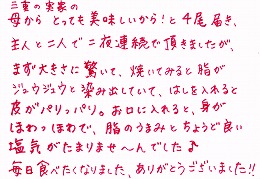 三重の実家の
母から とっても美味しいから!と4尾届き、
主人と二人で二夜連続で頂きましたが、
まず大きさに驚いて、焼いてみると脂が
ジュウジュウと染み出していて、はしを入れると
皮がパリッパリ。お口に入れると、身が
ほわっほわで、脂のうまみとちょうど良い
塩気がたまりませ〜んでした♪
毎日食べたくなりました、ありがとうございました!!